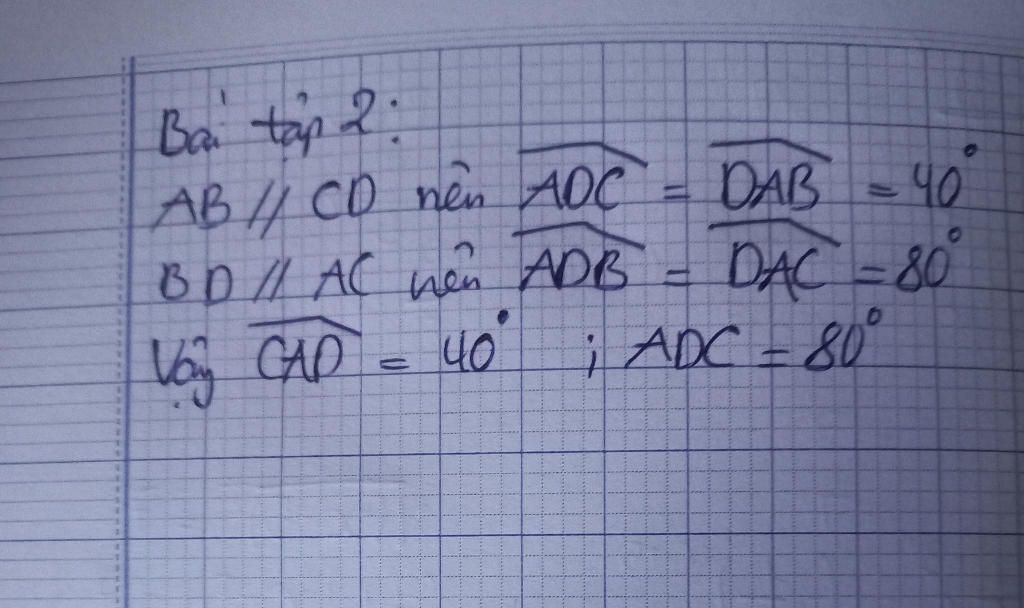 Bài tập 2:
AB // CD nên ADC = DAB = 40°
BD // AC nên ADB = DAC = 80°
Vậy CAD = 40° ; ADC = 80°